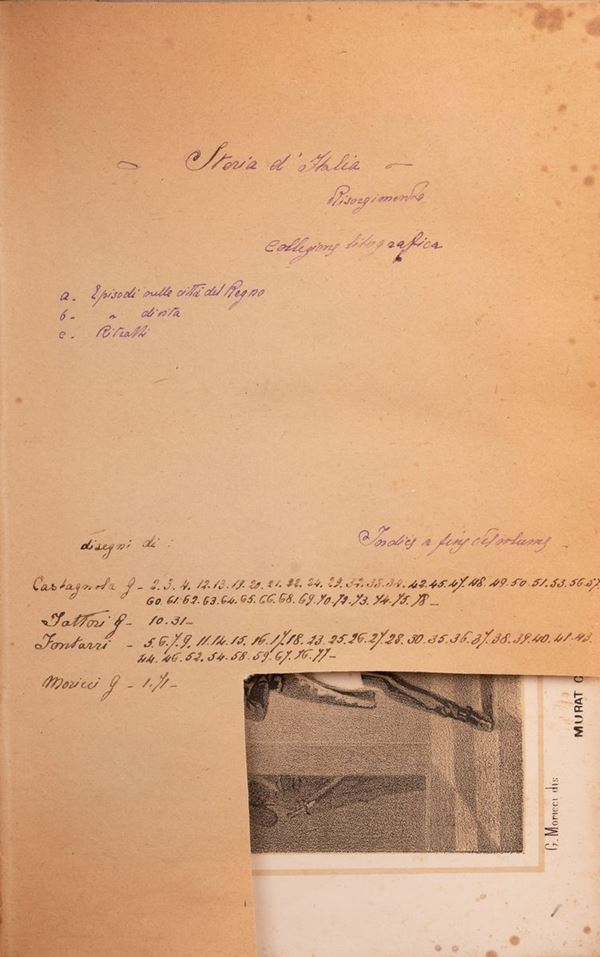 Storia d'Italia
Risorgimento
Collezione litografica
a. Episodi nelle città del Regno
b. " di vita
c. Ritratti
Indice a fine del volume
disegni di :
Castagnola G - 2. 3. 4. 12. 13. 19. 20. 21. 22. 24. 29. 32. 33. 34. 42. 45. 47. 48. 49. 50. 51. 53. 56. 57
60. 61. 62. 63. 64. 65. 66. 68. 69. 70. 72. 73. 74. 75. 78 -
Fattori G - 10. 31 -
Fontani - 5. 6. 7. 9. 11. 14. 15. 16. 17. 18. 23. 25. 26. 27. 28. 30. 35. 36. 37. 38. 39. 40. 41. 43.
44. 46. 52. 54. 58. 59. 67. 76. 77 -
Moricci G - 1. 71 -
G. Moricci dis
MURAT